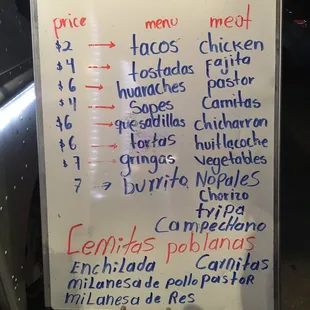 price menu meat
$2 → tacos chicken
$4 → tostadas fajita
$6 → huaraches pastor
$4 → Sopes Carnitas
$6 → quesadillas Chicharron
$6 → tortas huitlacoche
$7 → gringas vegetables
7 → burrito Nopales
Chorizo
tripa
Campechano
Cemitas poblanas
Enchilada Carnitas
milanesa de pollo pastor
milanesa de Res